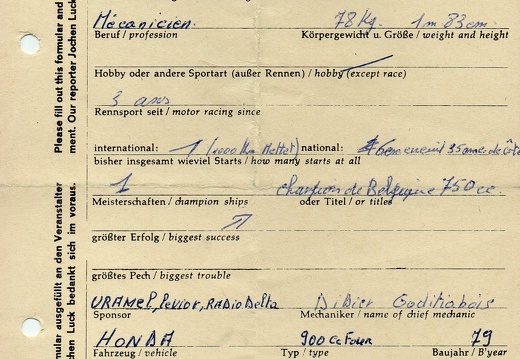 Mécanicien. 78 Kg. 1m 83 cm.
Beruf / profession Körpergewicht u. Größe / weight and height
Hobby oder andere Sportart (außer Rennen) / hobby (except race)
3 ans
Rennsport seit / motor racing since
international: 1 (1000 Km Mettet) national: 35 de côte
bisher insgesamt wieviel Starts / how many starts at all
1 champion de Belgique 750 cc.
Meisterschaften / champion ships oder Titel / or titles
größter Erfolg / biggest success
größtes Pech / biggest trouble
URAMEL, Levior, RADio Delta Didier
Sponsor Mechaniker / name of chief mechanic
HONDA 900 cc 79
Fahrzeug / vehicle Typ / type Baujahr / B'year
Please fill out this formular and
ment. Our reporter Jochen Luck
mular ausgefüllt an den Veranstalter
chen Luck bedankt sich im voraus.